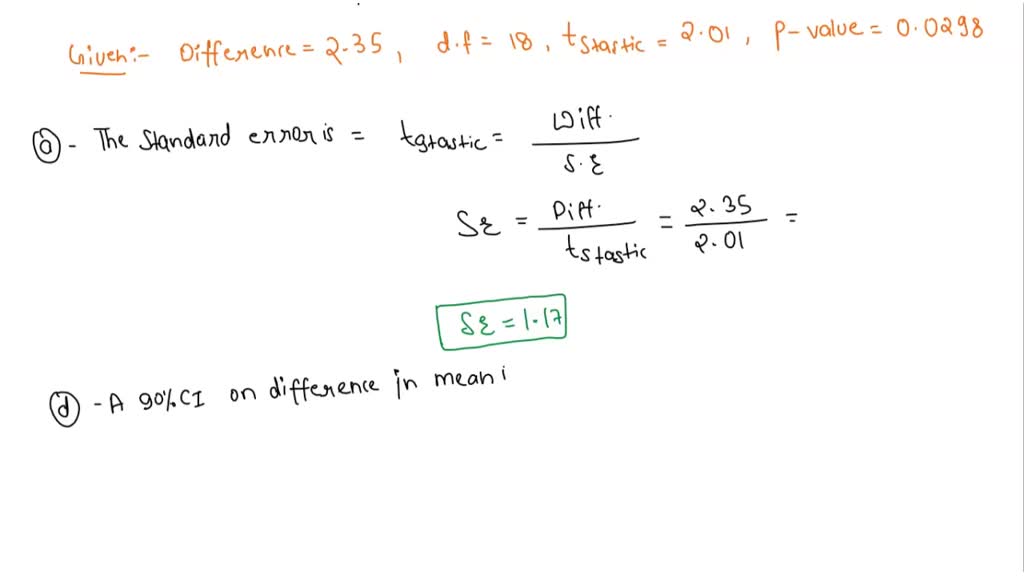 Given:- Difference = 2.35, d.f = 18, tstastic = 2.01, p-value = 0.0298
a - The Standard error is = tstastic = Diff. / S.E
SE = Diff. / tstastic = 2.35 / 2.01 =
SE = 1.17
d - A 90% CI on difference in mean i